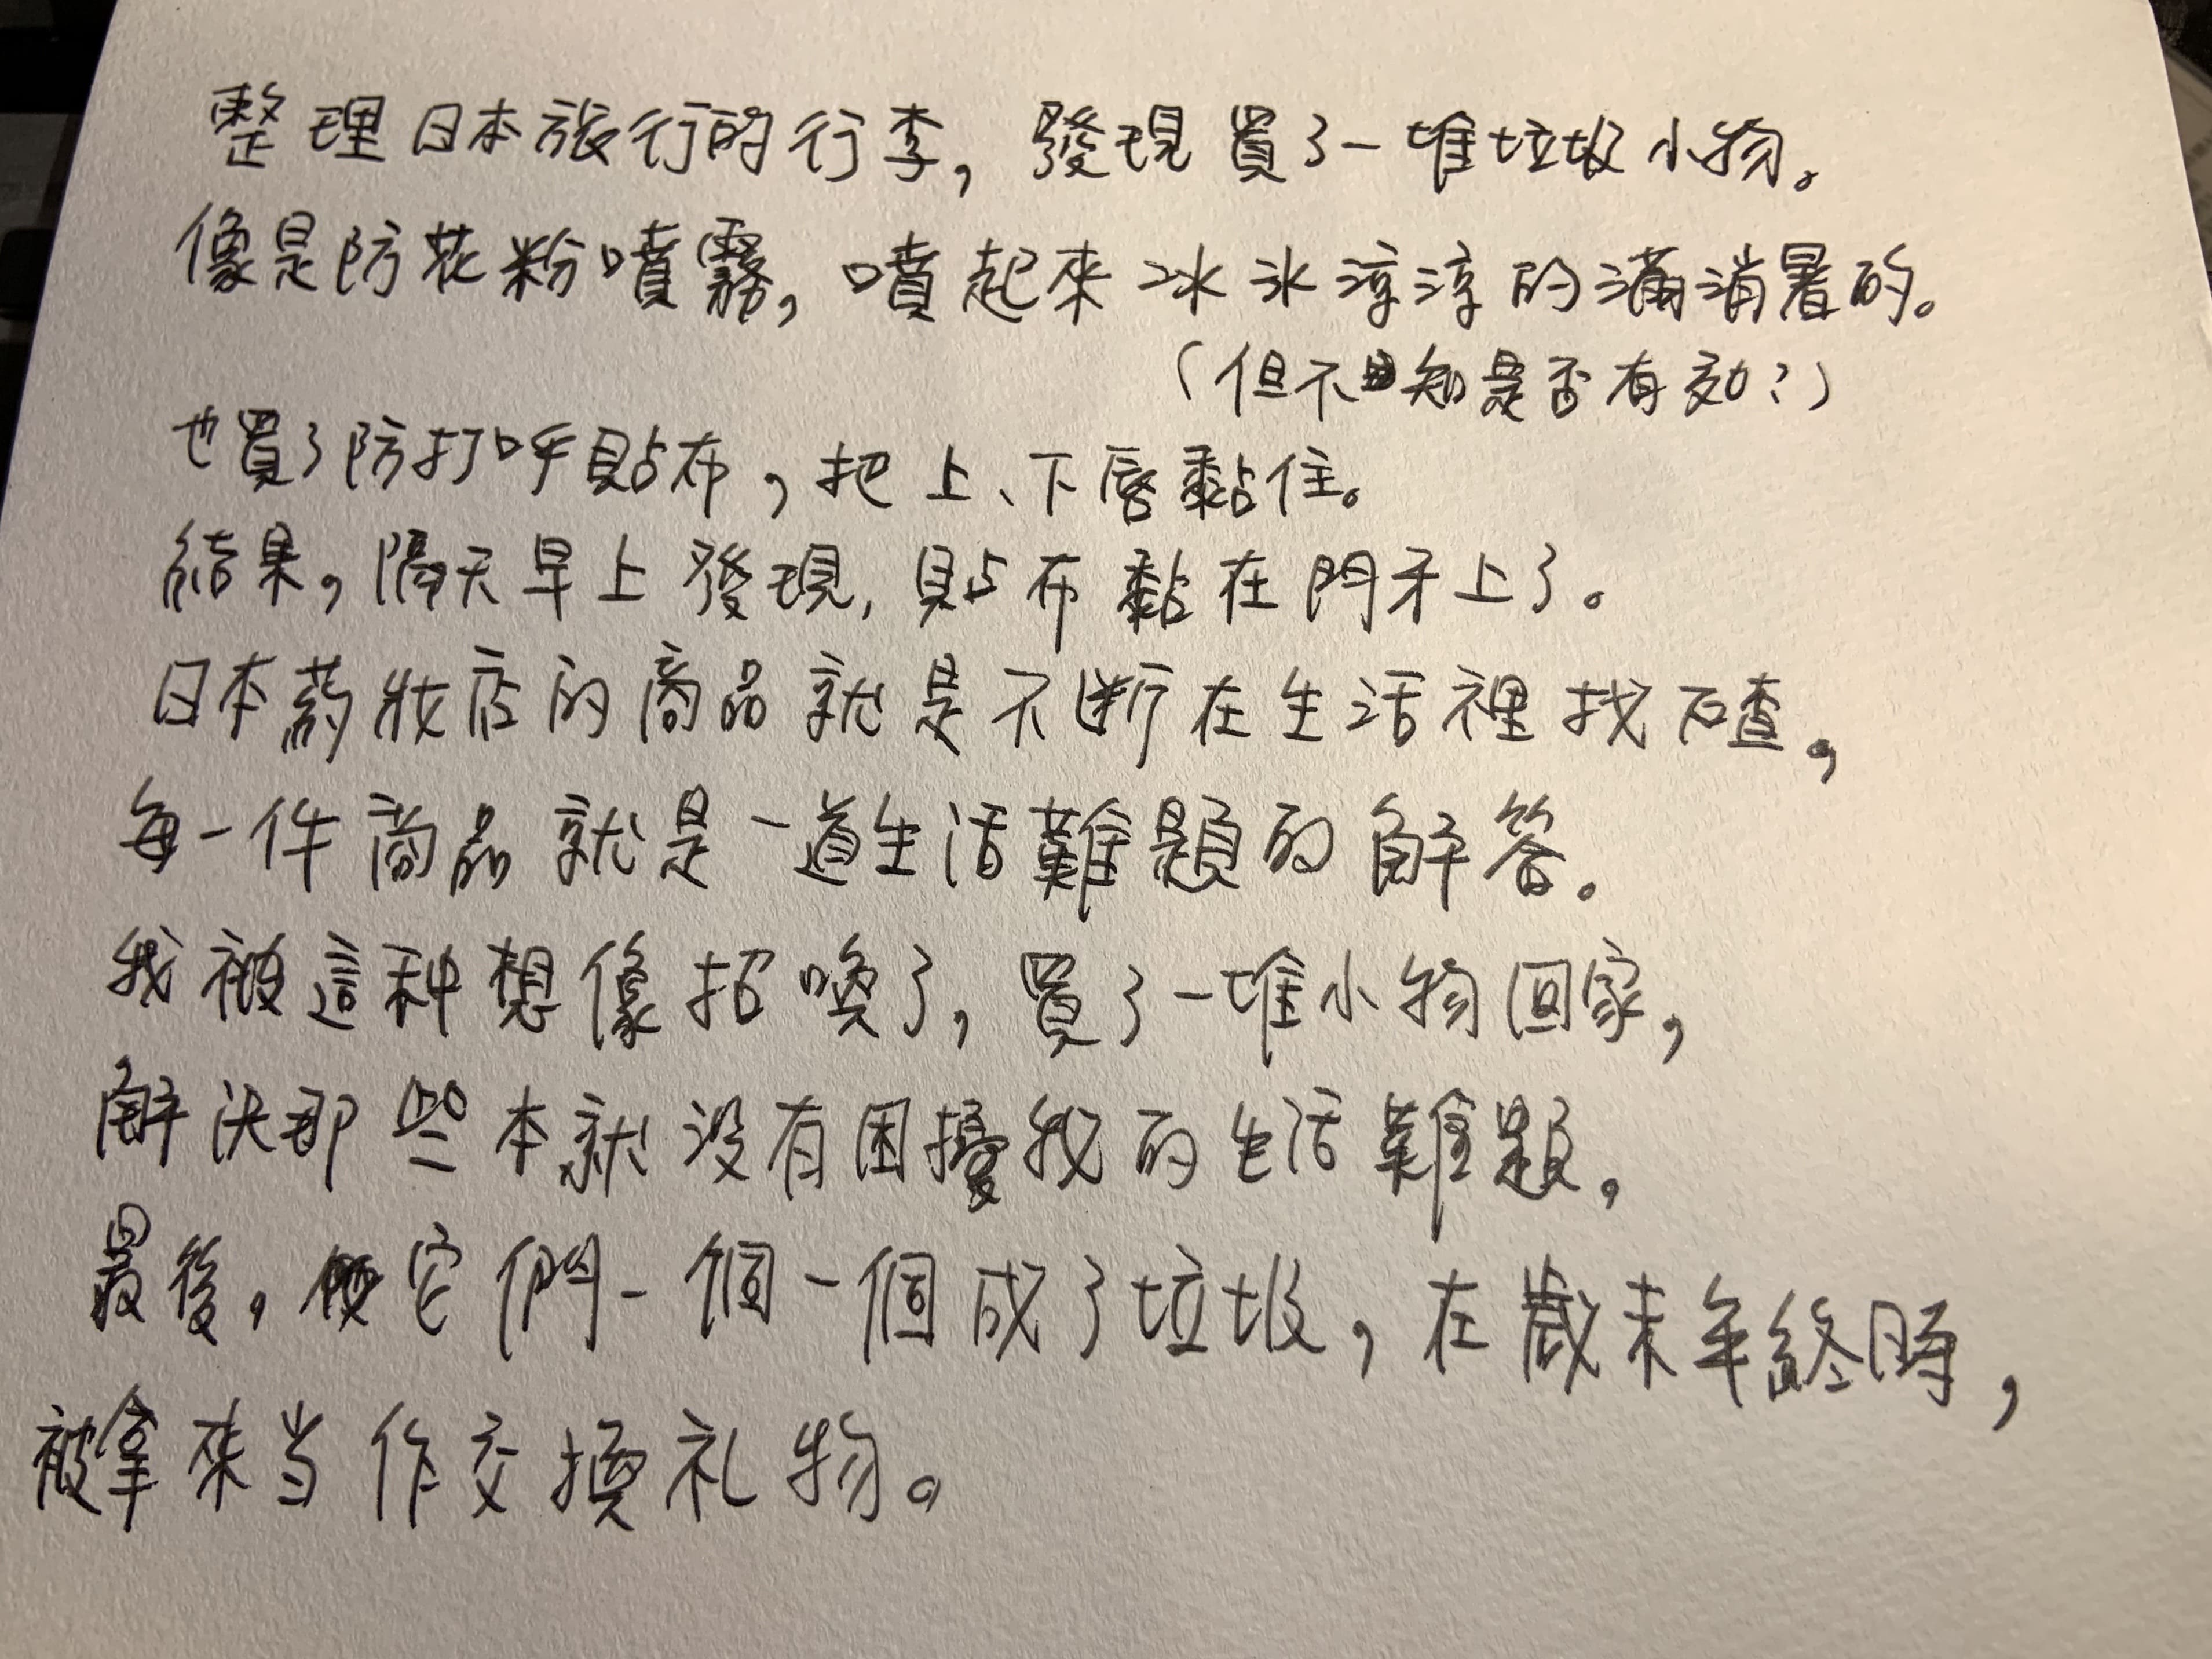 整理日本旅行的行李，發現買了一堆垃圾小物。
像是防花粉噴霧，噴起來冰冰涼涼的滿消暑的。
（但不知是否有效？）
也買了防打呼貼布，把上、下唇黏住。
結果，隔天早上發現，貼布黏在門牙上了。
日本藥妝店的商品就是不斷在生活裡找碴，
每一件商品就是一道生活難題的解答。
我被這種想像招喚了，買了一堆小物回家，
解決那些本就沒有困擾我的生活難題。
最後，使它們一個一個成了垃圾，在歲末年終時，
被拿來当作交換礼物。